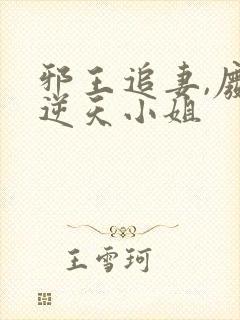 邪王追妻,
逆天小姐
王雪珂